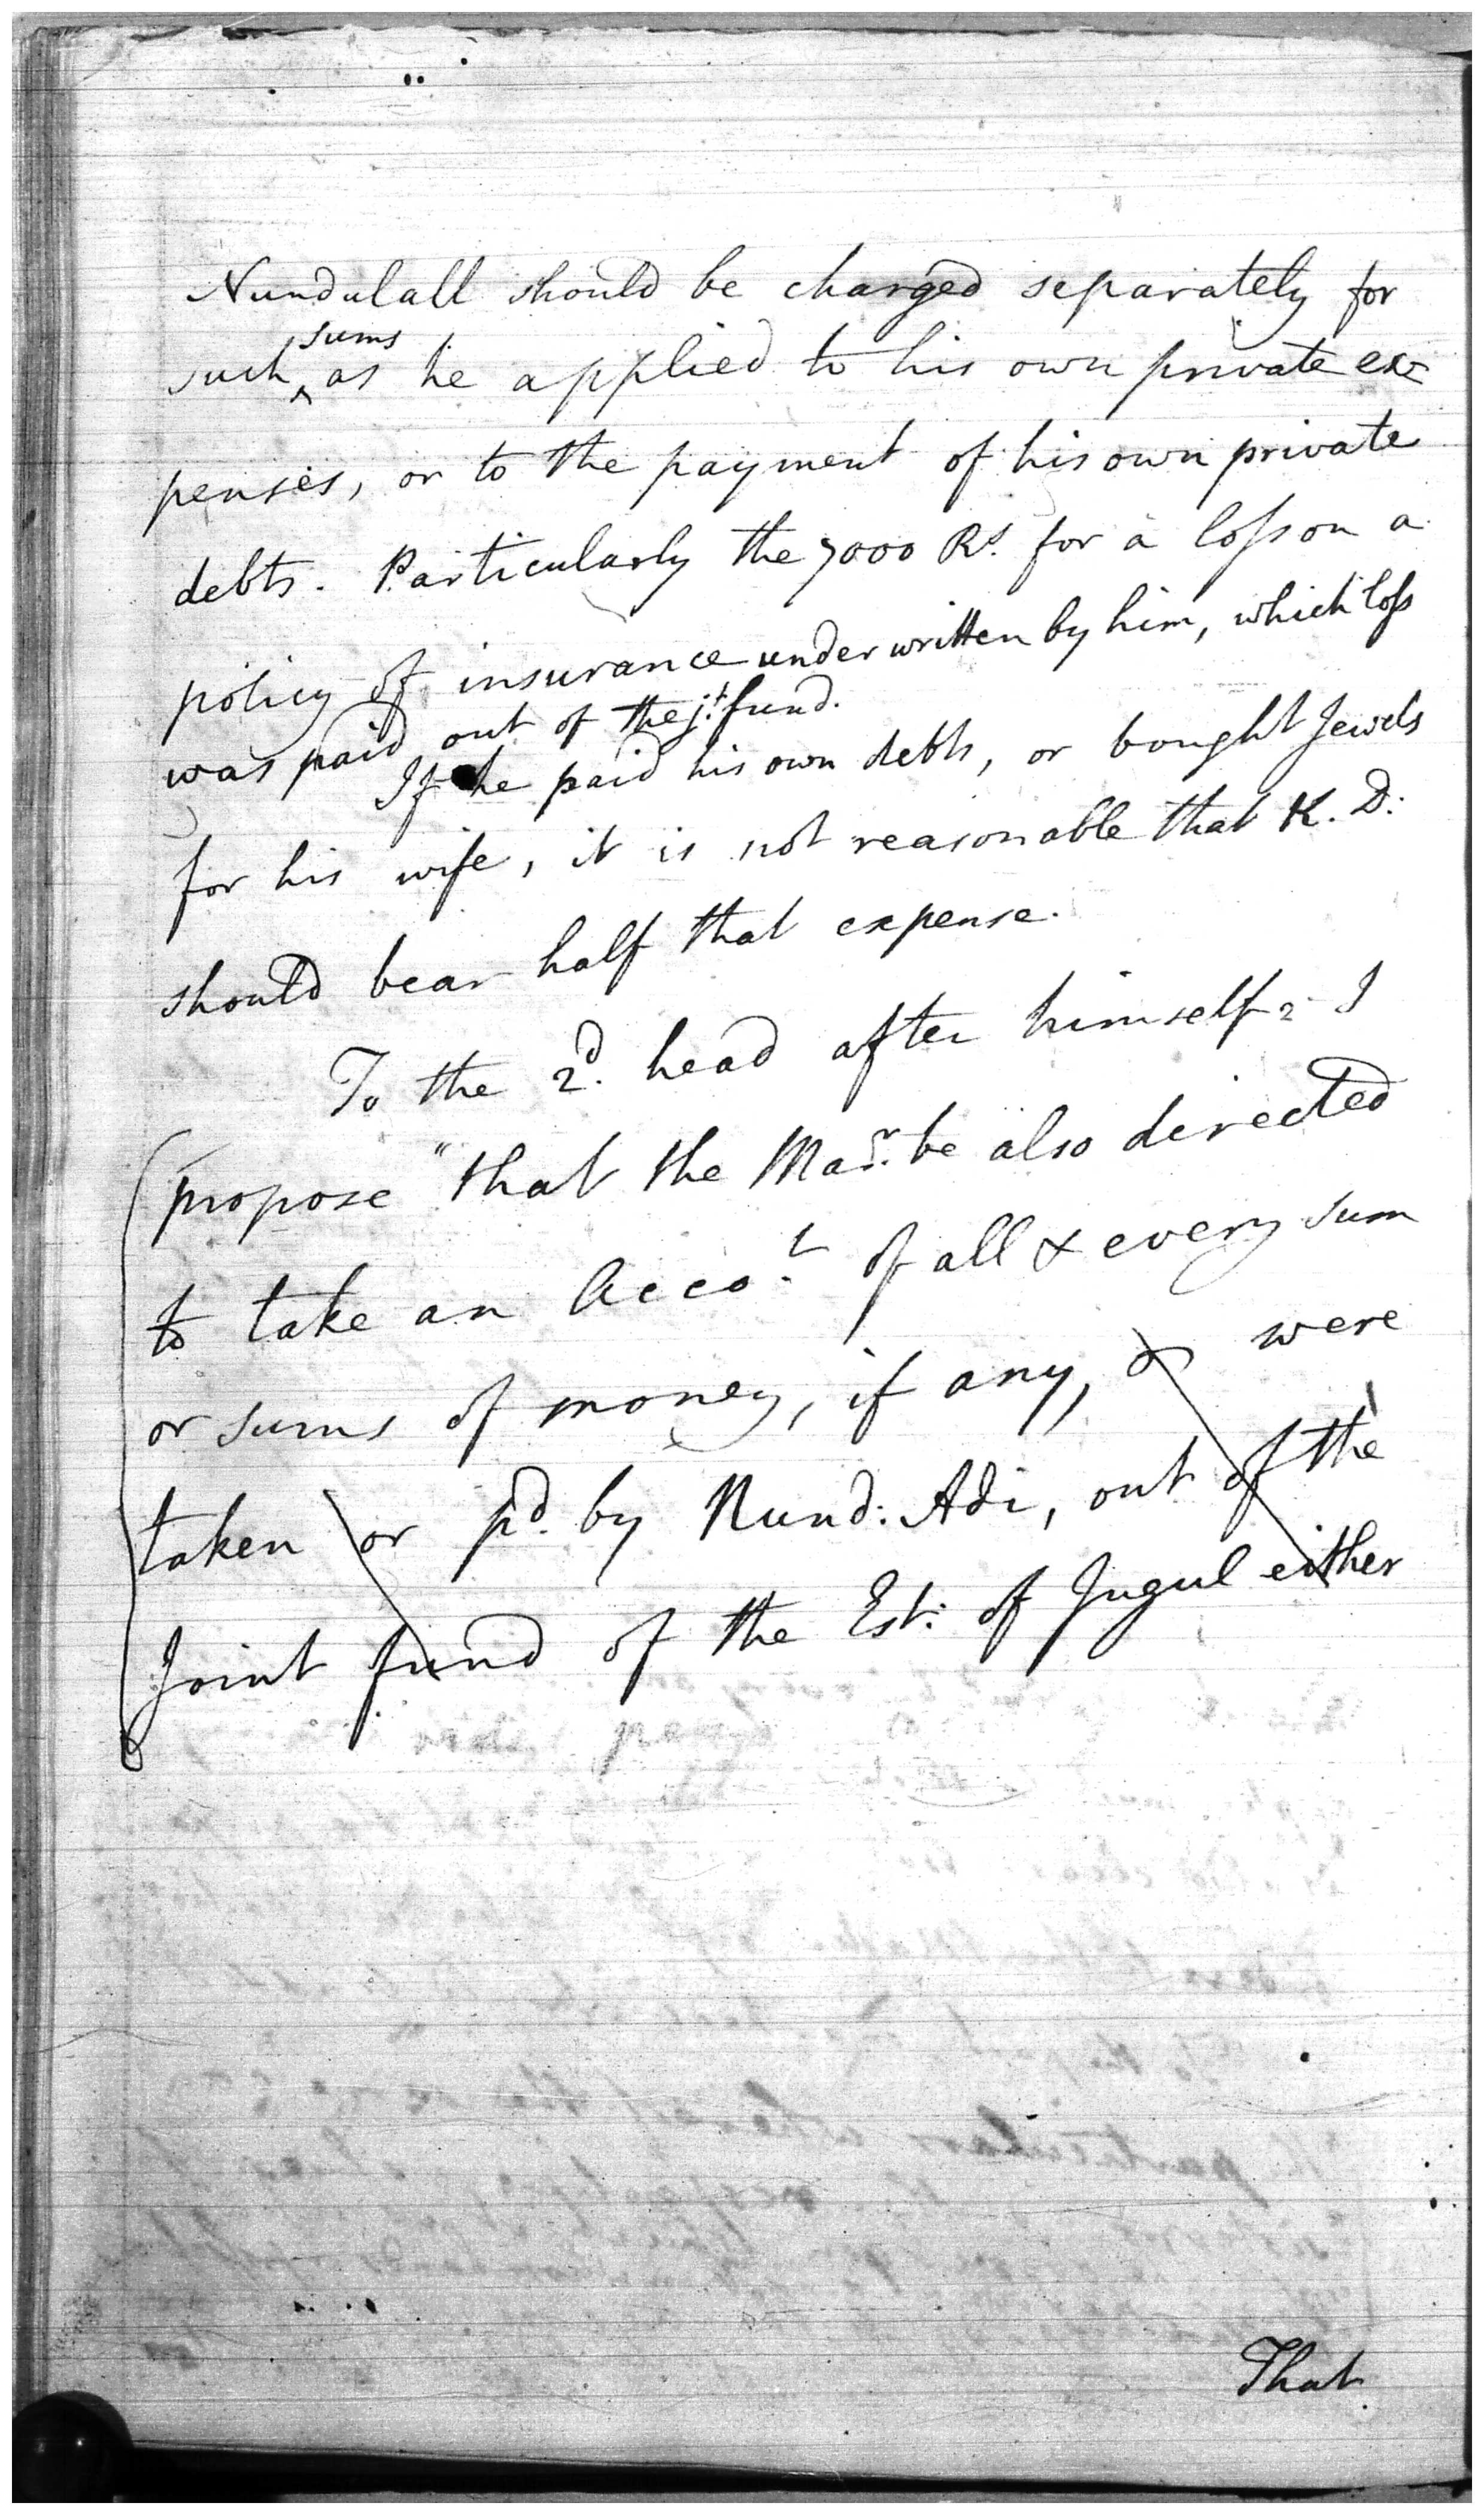 Nundulall should be charged separately for
such sums as he applied to his own private ex-
penses, or to the payment of his own private
debts. Particularly the 7000 Rs. for a loss on a
policy of insurance underwritten by him, which loss
was paid out of the jt. fund.
If he paid his own debts, or bought Jewels
for his wife, it is not reasonable that K. D:
should bear half that expense.
To the 2d. head after himself I
propose "that the Masr. be also directed
to take an Accot. of all & every sum
or sums of money, if any, or were
taken or pd. by Nund: Adi, out of the
Joint fund of the Est: of Jugul either
That